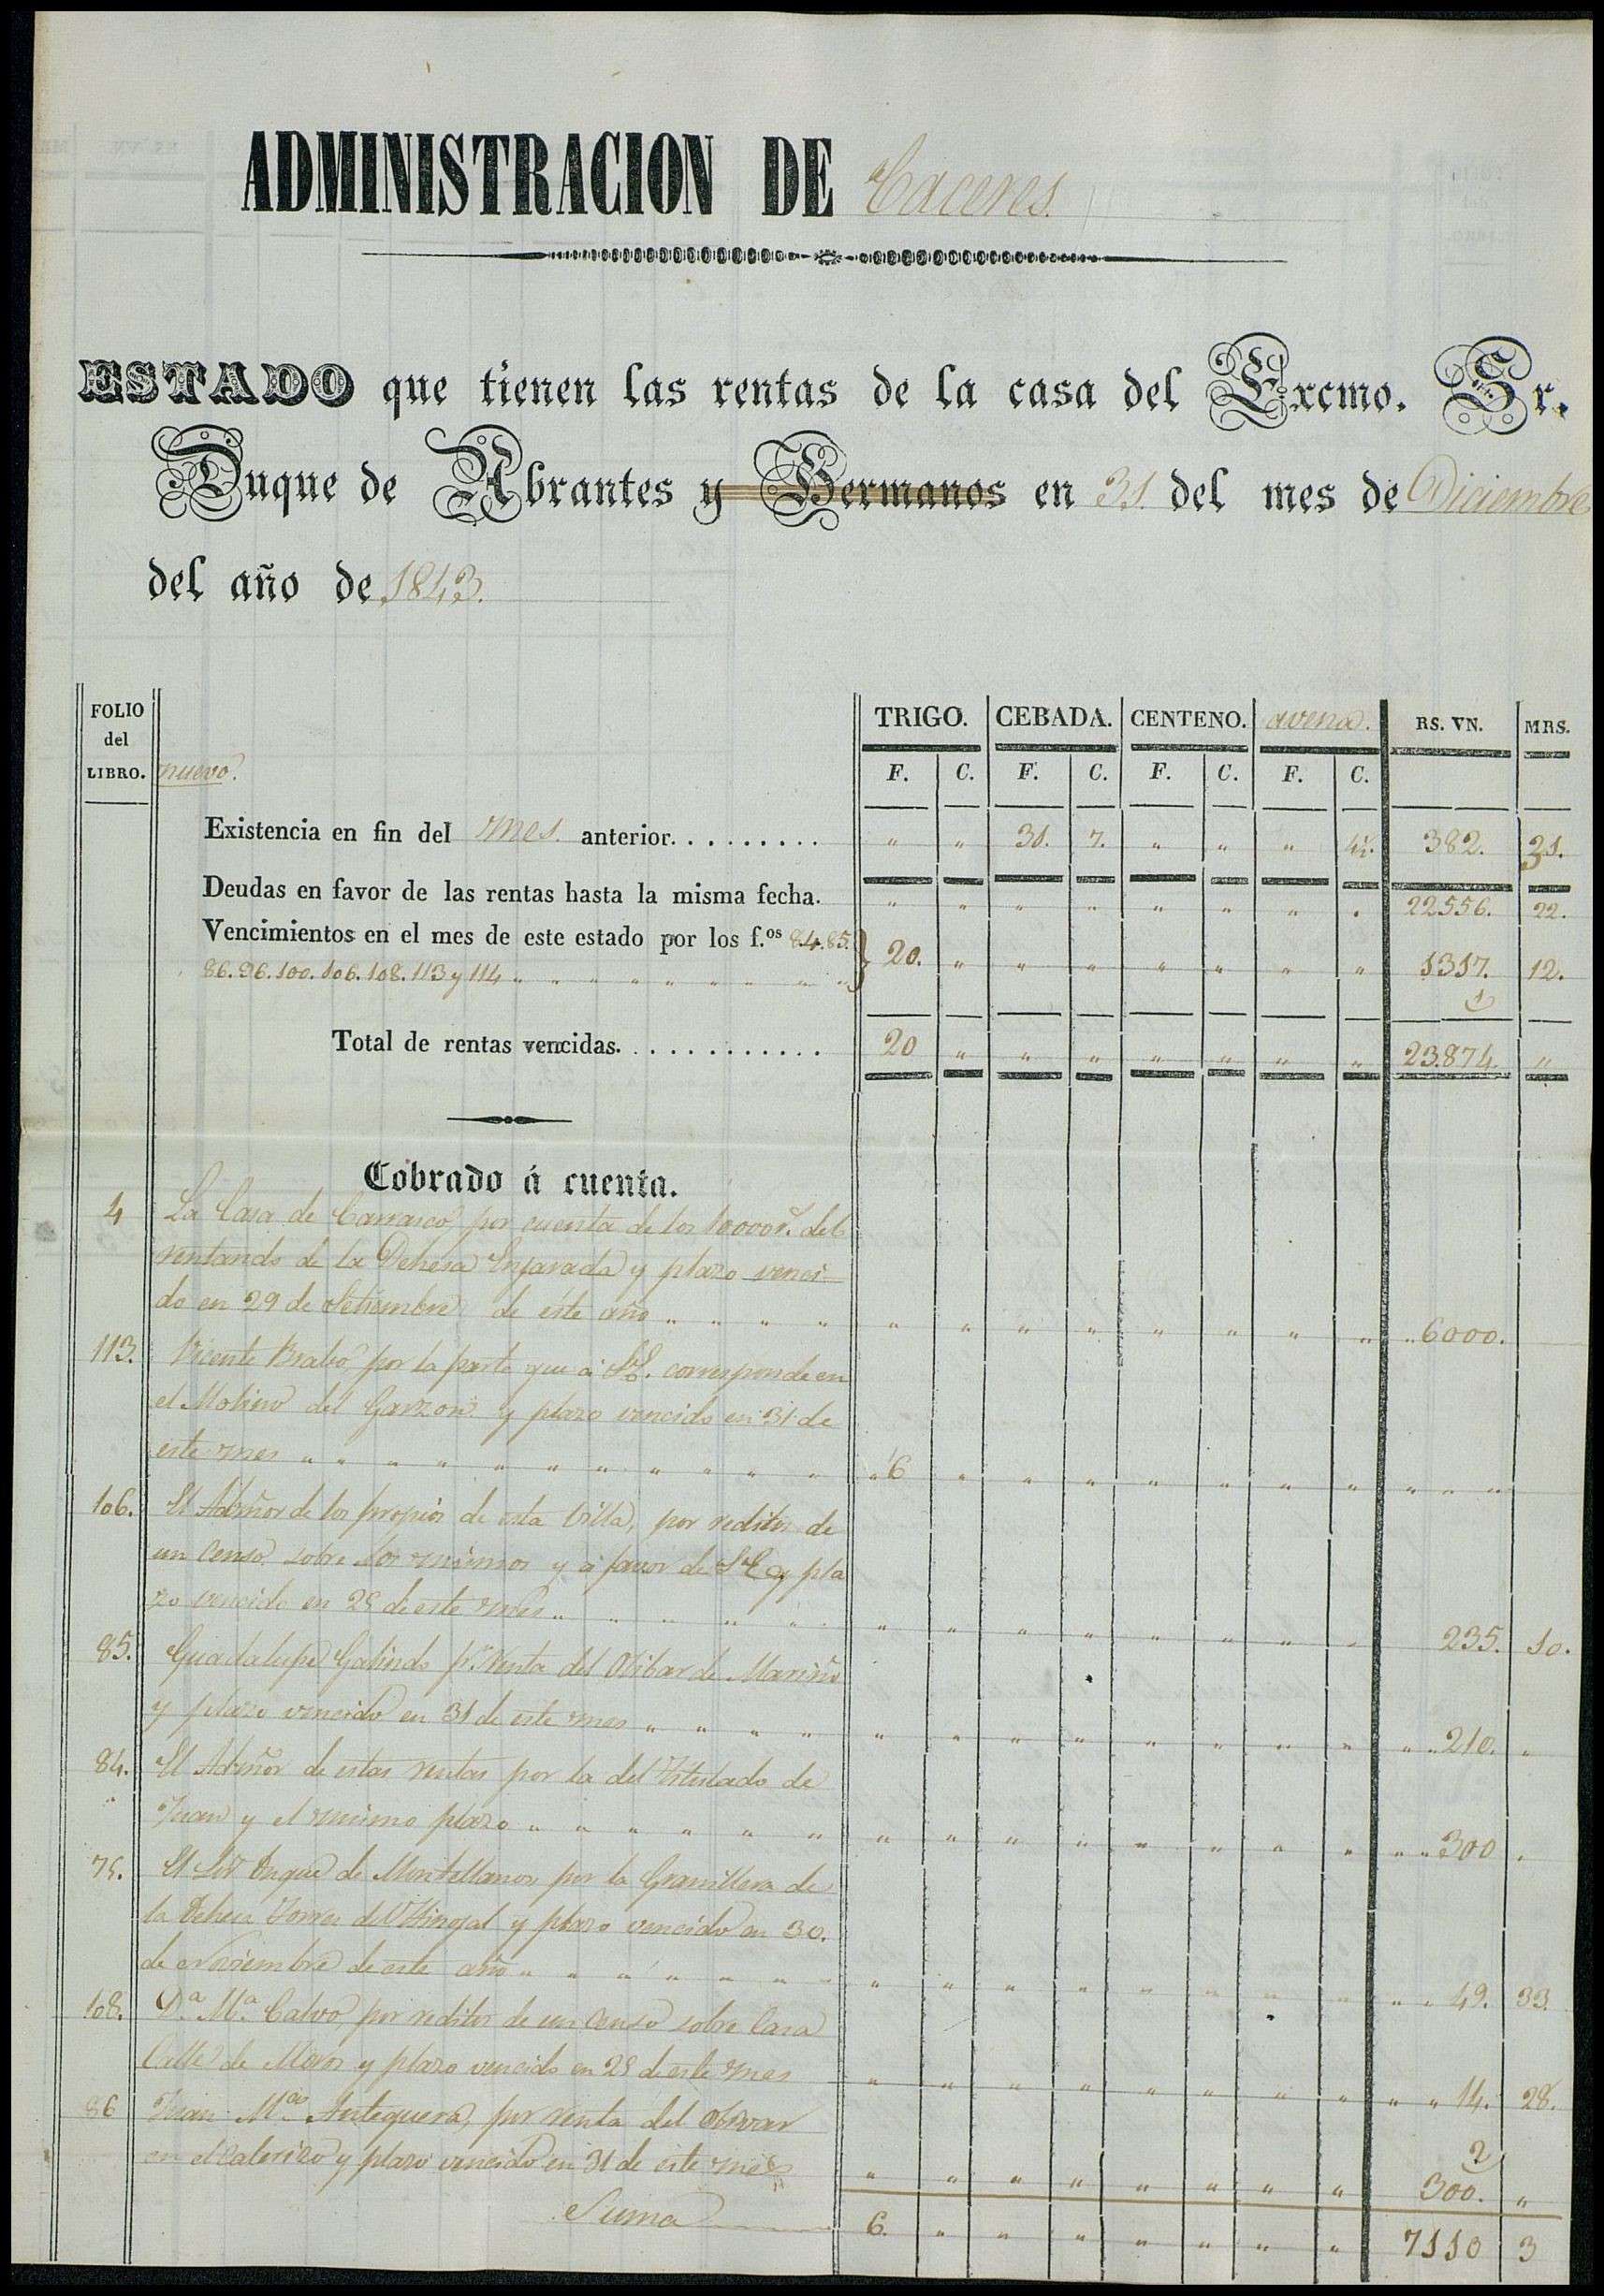 ADMINISTRACION DE Caceres.
ESTADO que tienen las rentas de la casa del Excmo. Sr.
Duque de Abrantes y Hermanos en 31. del mes de Diciembre
del año de 1843.
FOLIO del LIBRO. nuevo.
TRIGO. CEBADA. CENTENO. avena. RS. VN. MRS.
F. C. F. C. F. C. F. C.
Existencia en fin del mes. anterior......... " " 31. 7. " " " 4½. 382. 21.
Deudas en favor de las rentas hasta la misma fecha. " " " " " " " " 22556. 22.
Vencimientos en el mes de este estado por los f.os 84.85.
86.96.100.106.108.113 y 114 " " " " " " " " " " 20. " " " " " " " 1317. 12.
1
Total de rentas vencidas............ 20 " " " " " " " 23.874. "
Cobrado á cuenta.
4 La Casa de Carrasco, por cuenta de los 10000 r.s del
rentando de la Dehesa Enjarada y plazo venci-
do en 29 de Setiembre de este año " " " " " " " " " " " " " 6000.
113. Vicente Brabo, por la parte que á S.E. corresponde en
el Molino del Garzon y plazo vencido en 31 de
este mes " " " " " " " " " " " " 6 " " " " " " " " " "
106. El Admñor de los propios de esta Villa, por reditos de
un Censo sobre los mismos y á favor de S.E. y pla
zo vencido en 25 de este mes " " " " " " " " " " " " " 235. 10.
85. Guadalupe Galindo p.r renta del Olibar de Mariño
y plazo vencido en 31 de este mes " " " " " " " " " " " " " " 210. "
84. El Admñor de estas rentas por la del
Juan y el mismo plazo " " " " " " " " " " " " " " " " 300 "
75. El Sor Duque de Montellanos por la Granillera de
la Dehesa Torre del Hinojal y plazo vencido en 30.
de Noviembre de este año " " " " " " " " " " " " " " " " 49. 33.
108. D.a M.a Calvo, por reditos de un Censo sobre Casa
Calle de Moros y plazo vencido en 25 de este mes " " " " " " " " " " 14. 28.
86 Juan M.a Antequera, por renta del Olivar
en el Calerizo y plazo vencido en 31 de este mes " " " " " " " " 300. "
2
Suma 6. " " " " " " " 7110 3